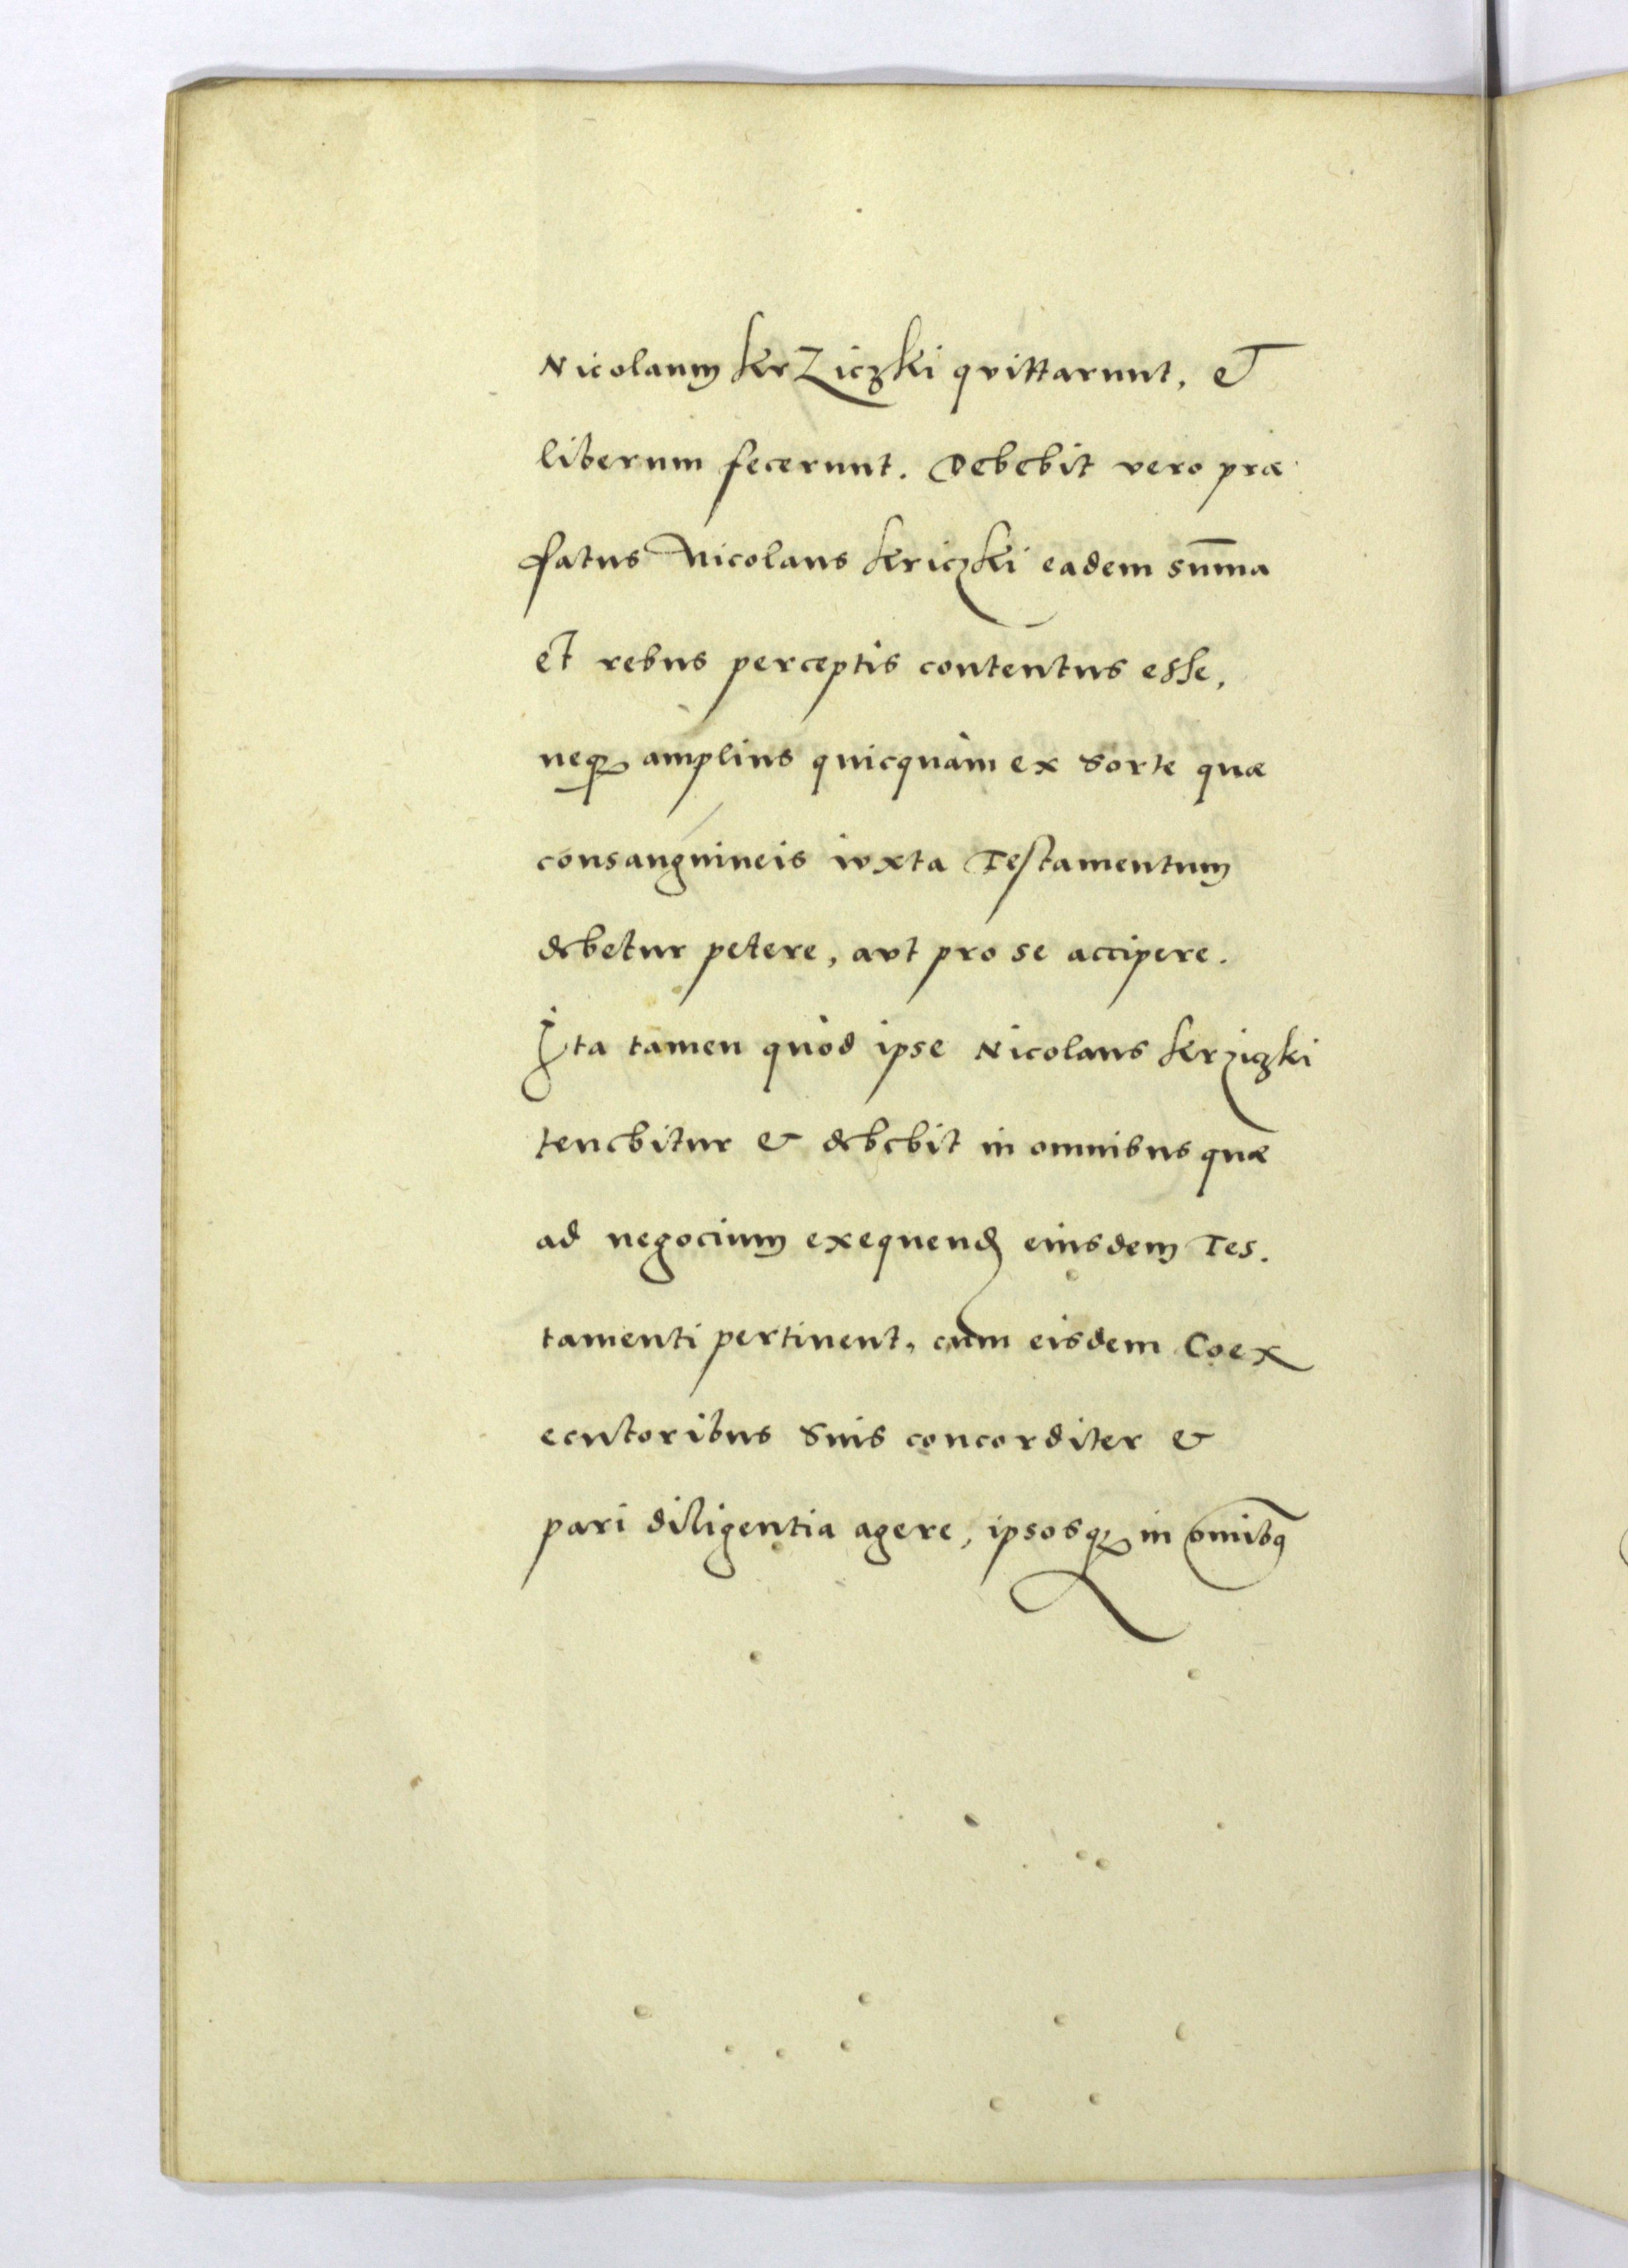 Nicolaum KrZiczki qvittarunt, et
liberum fecerunt. Debebit vero præ
fatus Nicolaus Kriczki eadem sum̄a
et rebus perceptis contentus esse,
neqꝫ amplius quicquàm ex Sorte quæ
consanguineis ivxta Testamentum
debetur petere, avt pro se accipere.
Ita tamen quòd ipse Nicolaus Krziczki
tenebitur & debebit in omnibus quæ
ad negocium exequend eiusdem Tes.
tamenti pertinent, cum eisdem Coex
ecutoribus Suis concorditer &
pari diligentia agere, ipsosqꝫ in om̄ibꝯ